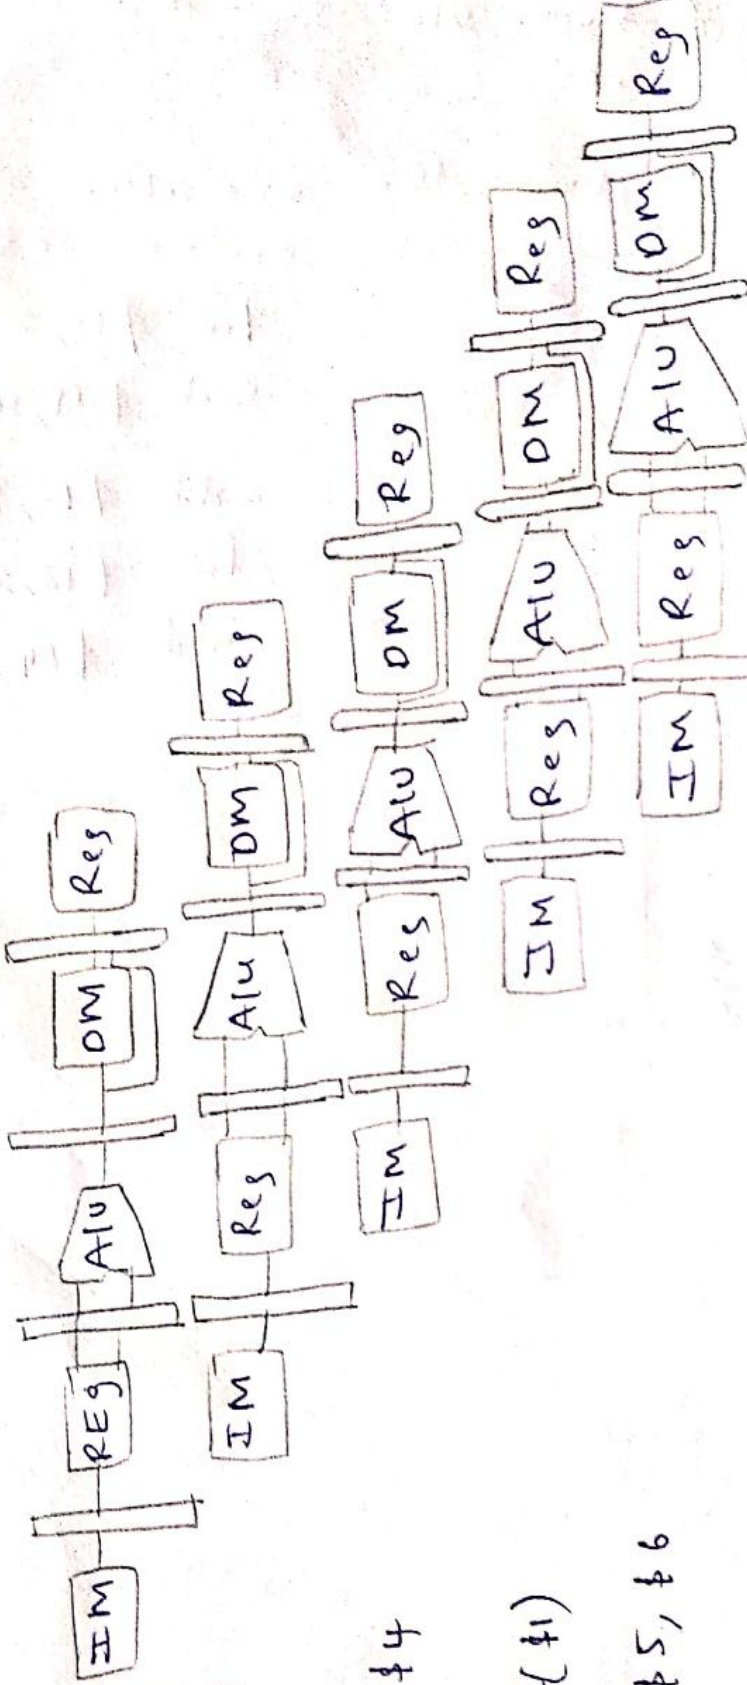 IM REg Alu DM Reg
IM Reg Alu DM Reg
$4 IM Reg Alu DM Reg
($1) IM Reg Alu DM Reg
$5, $6 IM Reg Alu DM Reg